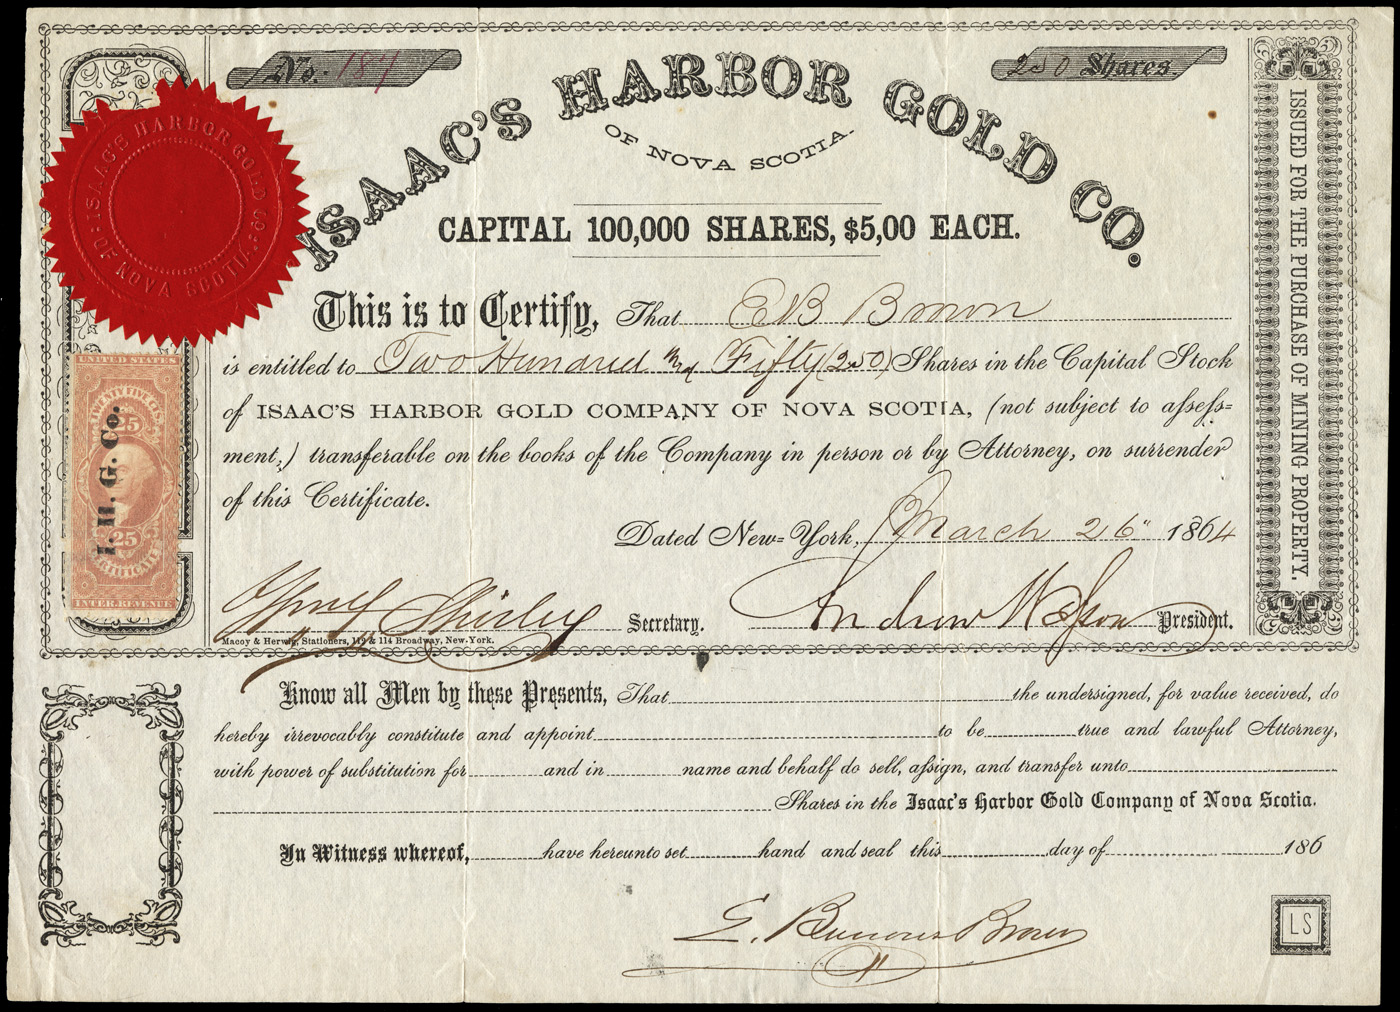 No. 187
250 Shares.
ISAAC'S HARBOR GOLD CO.
OF NOVA SCOTIA.
CAPITAL 100,000 SHARES, $5,00 EACH.
ISAAC'S HARBOR GOLD CO.
OF NOVA SCOTIA
This is to Certify, That E B Brown
is entitled to Two Hundred and Fifty (250) Shares in the Capital Stock
of ISAAC'S HARBOR GOLD COMPANY OF NOVA SCOTIA, (not subject to assess=
ment,) transferable on the books of the Company in person or by Attorney, on surrender
of this Certificate.
Dated New=York, March 26" 1864
Secretary.
Andrew President.
Macoy & Herwig, Stationers, 112 & 114 Broadway, New-York.
UNITED STATES
TWENTY FIVE CENTS
25
I. H. G. Co.
25
CERTIFICATE
INTER. REVENUE
ISSUED FOR THE PURCHASE OF MINING PROPERTY.
Know all Men by these Presents, That the undersigned, for value received, do
hereby irrevocably constitute and appoint to be true and lawful Attorney,
with power of substitution for and in name and behalf do sell, assign, and transfer unto
Shares in the Isaac's Harbor Gold Company of Nova Scotia.
In Witness whereof, have hereunto set hand and seal this day of 186
E. Burrows Brown
LS